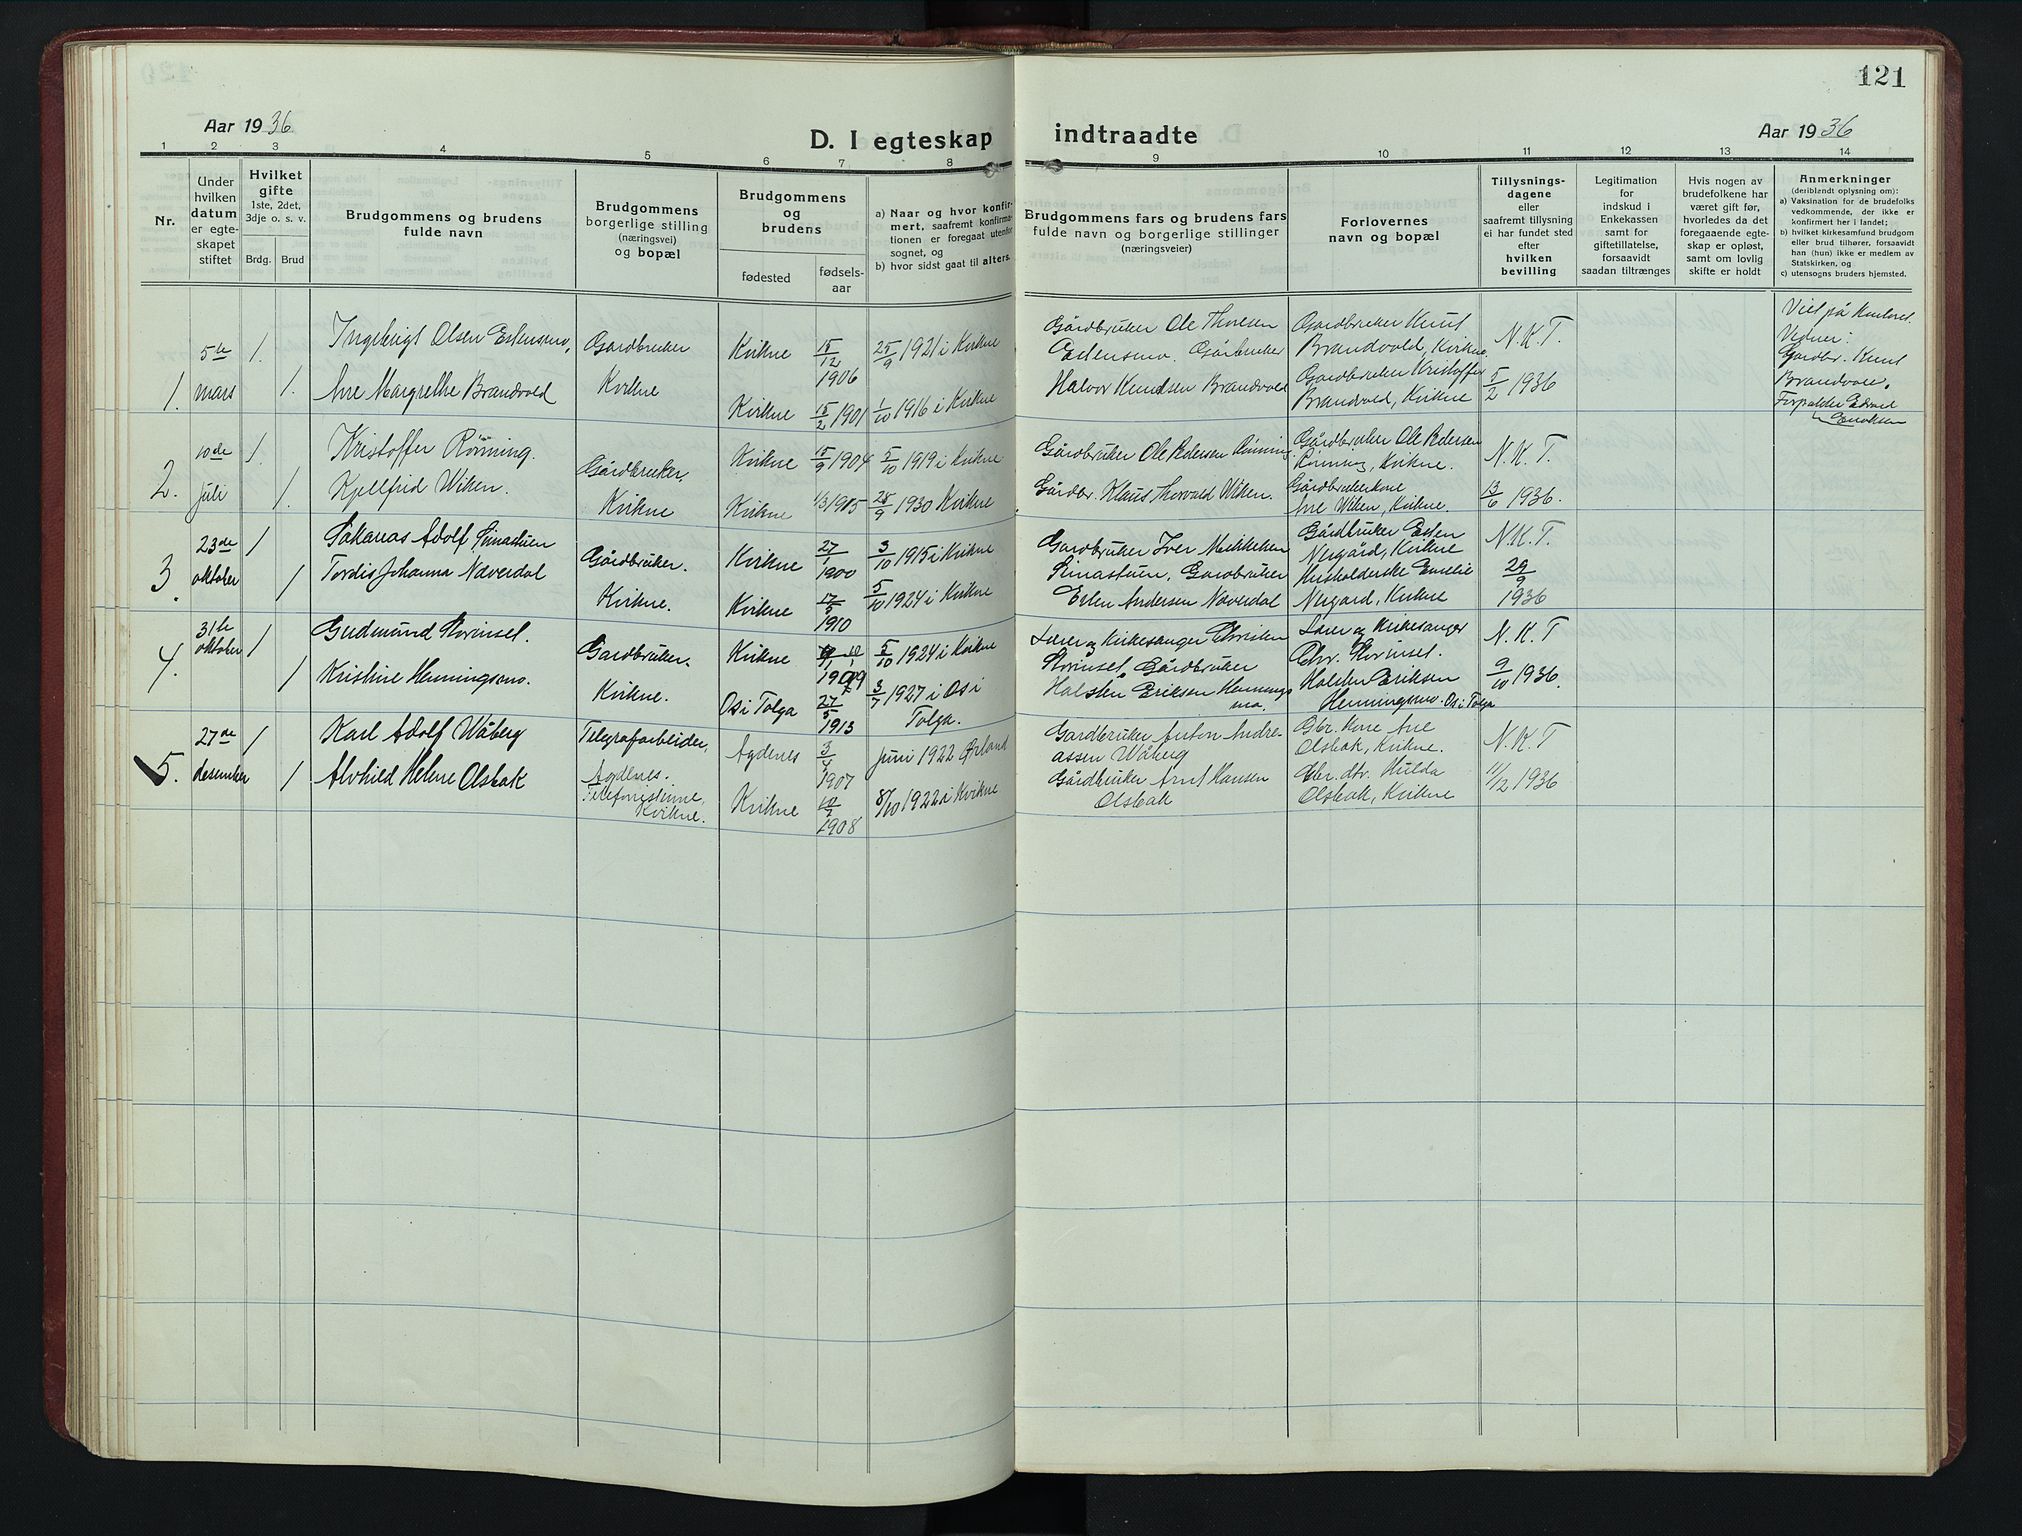 121
Aar 1936
D. I egteskap indtraadte
Aar 1936
1 2 3 4 5 6 7 8 9 10 11 12 13 14
Nr.
Under
hvilken
datum
er egte-
skapet
stiftet
Hvilket
gifte
1ste, 2det,
3dje o. s. v.
Brdg. Brud
Brudgommens og brudens
fulde navn
Brudgommens
borgerlige stilling
(næringsvei)
og bopæl
Brudgommens
og
brudens
fødested
fødsels-
aar
a) Naar og hvor konfir-
mert, saafremt konfirma-
tionen er foregaat utenfor
sognet, og
b) hvor sidst gaat til alters.
Brudgommens fars og brudens fars
fulde navn og borgerlige stillinger
(næringsveier)
Forlovernes
navn og bopæl
Tillysnings-
dagene
eller
saafremt tillysning
ei har fundet sted
efter
hvilken
bevilling
Legitimation
for
indskud i
Enkekassen
samt for
giftetillatelse,
forsaavidt
saadan tiltrænges
Hvis nogen av
brudefolkene har
været gift før,
hvorledes da det
foregaaende egte-
skap er opløst,
samt om lovlig
skifte er holdt
Anmerkninger
(deriblendt oplysning om):
a) Vaksination for de brudefolks
vedkommende, der ikke er
konfirmert her i landet;
b) hvilket kirkesamfund brudgom
eller brud tilhører, forsaavidt
han (hun) ikke er medlem av
Statskirken, og
c) utensogns bruders hjemsted.
1.
5te
mars
1.
1.
Ingebrigt Olsen Estensmo,
Ane Margrethe Brandvold
Gardbruker
Kvikne
Kvikne
15/12
1906
25/9 1921 i Kvikne
Kvikne
15/2 1901
1/10 1916 i Kvikne
Gårdbruker Ole Thoresen
Estensmo. Gårbruker
Halvor Knudsen Brandvold
Gardbruker Knut
Brandvold, Kvikne
Gardbruker Kristoffer
Brandvold, Kvikne
N. K. T.
5/2 1936
Viet på Kontoret.
Vidner:
Gardbr. Knut
Brandvold,
Forpakter Edvard
2.
10de
juli
1.
1.
Kristoffer Rønning.
Kjellfrid Wiken.
Gårdbruker.
Kvikne
Kvikne
15/9 1904
5/10 1919 i Kvikne
Kvikne
1/3 1915
28/9 1930 Kvikne
Gårdbruker Ole Pedersen Rønning
Gårdbr. Klaus Thorvald Wiken.
Gårdbruker Ole Pedersen
Rønning, Kvikne.
Gårdbrukerkone
Ane Wiken, Kvikne.
N. K. T.
13/6 1936.
3.
23de
oktober
1
1
Sakarias Adolf Simastuen
Tordis Johanna Næverdal
Gårdbruker.
Kvikne.
Kvikne
27/1
1900
3/10 1915 i Kvikne
Kvikne
17/5
1910
5/10 1924 i Kvikne
Gardbruker Iver Mikkelsen
Simastuen, Gardbruker
Esten Andersen Næverdal
Gårdbruker Esten
Nergård, Kvikne
Husholderske Emelie
Nergard, Kvikne
N. K. T.
29/9
1936
4.
31te
oktober
1
1
Gudmund Storinset.
Kristine Henningsmo.
Gardbruker.
Kvikne.
Kvikne
1909
5/10 1924 i Kvikne
Os i Tolga
27/5
1913
3/7 1927 i Os i
Tolga.
Lærer og Kirkesanger Christen
Storinset. Gårdbruker
Halsten Eriksen Hennings
mo.
Lærer og Kirkesanger
Chr. Storinset.
Halsten Eriksen
Henningsmo. Os i Tolga
N. K. T
9/10 1936.
5.
27de
desember
1
1
Karl Adolf Wåberg
Alvhild Helene Olsbak
Telegrafarbeider,
Agdenes.
Telefonistinne,
Kvikne.
Agdenes
3/4
1907
juni 1922 Ørland
Kvikne
1908
8/10 1922 i Kvikne
Gardbruker Anton Andre-
assen Wåberg
Gårdbruker Arnt Hansen
Olsbak
Gbr. kone Ane
Olsbak, Kvikne.
Gbr. dtr. Hulda
Olsbak, Kvikne
N. K. T
11/12 1936